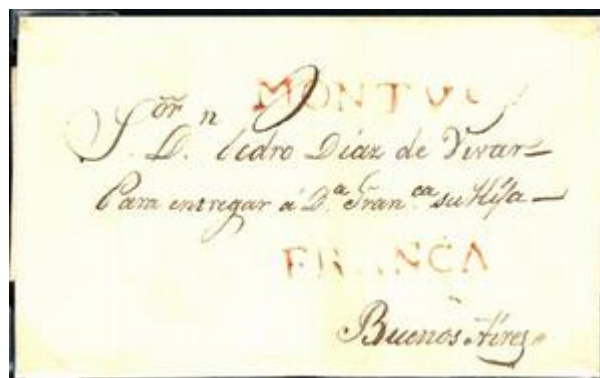 MONTVO
S.ᵒʳ D.ⁿ Pedro Díaz de Vivar
Para entregar á D.ª Fran.ᶜᵃ su Hija
FRANCA
Buenos Aires